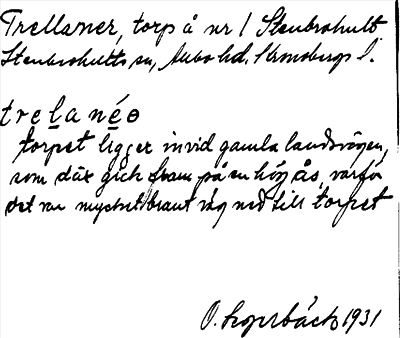 Trellaner, torp å nr 1 Stenbrohult
Stenbrohults sn, Allbo hd. Kronobergs l.
trelanéǝ
torpet ligger invid gamla landsvägen,
som där gick fram på en hög ås, varför
det var mycket brant väg ned till torpet
O. 1931